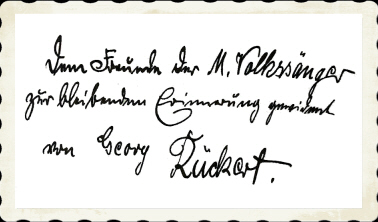 Dem Freunde der M. Volkssänger
zur bleibenden Erinnerung gewidmet
von Georg Rückert.